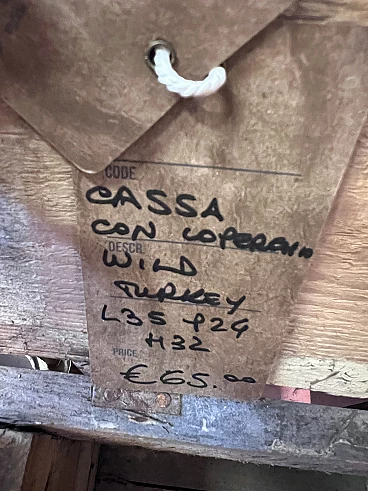 CODE
CASSA
CON COPERCHIO
DESCR.
WILD
TURKEY
L35 P24
H32
PRICE
€65.00